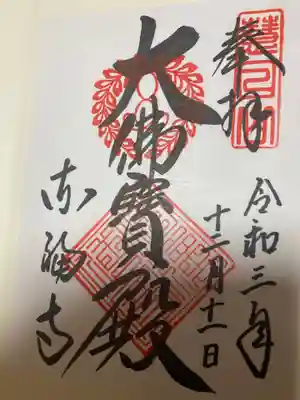 慧日山
奉拝
令和三年
十一月十一日
大佛寶殿
東福寺